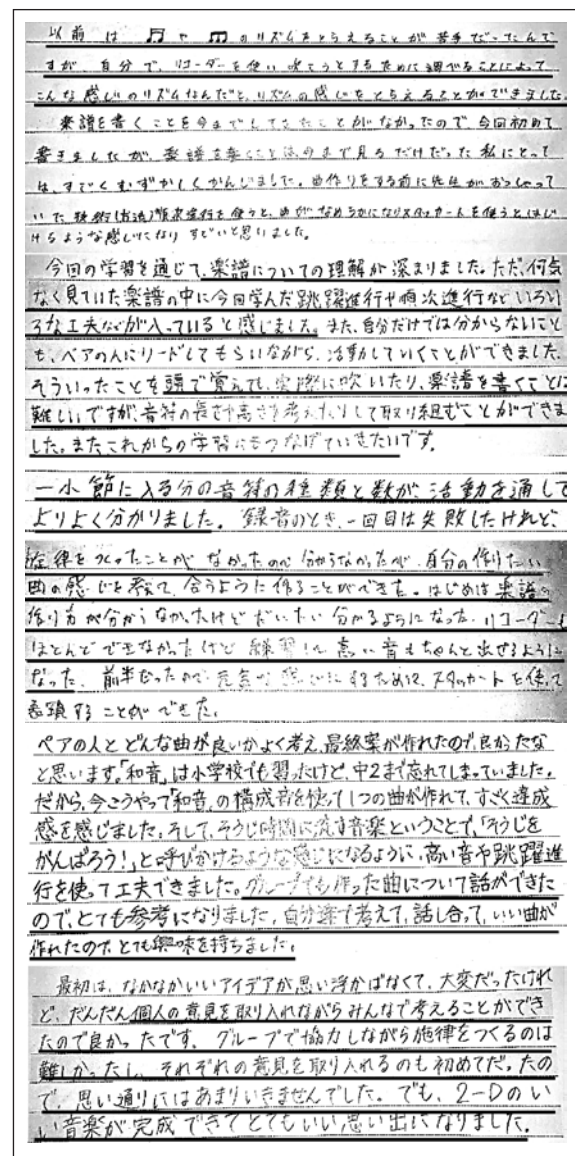 以前は ♫ や ♬ のリズムをとらえることが苦手だったんで
すが、自分で、リコーダーを使い吹こうとするために調べることによって
こんな感じのリズムなんだと、リズムの感じをとらえることができました。
楽譜を書くことを今までしてきたことがなかったので今回初めて
書きましたが、楽譜を書くことは今まで見るだけだった私にとって
は、すごくむずかしくかんじました。曲作りをする前に先生がおっしゃって
いた技術(方法)順次進行を使うと、曲がなめらかになりスタッカートを使うとはじ
けるような感じになりすごいと思いました。
今回の学習を通じて、楽譜についての理解が深まりました。ただ、何気
なく見ていた楽譜の中に今回学んだ跳躍進行や順次進行などいろい
ろな工夫などが入っていると感じました。また、自分だけでは分からないこと
も、ペアの人にリードしてもらいながら、活動していくことができました。
そういったことを頭で覚えても、実際に吹いたり、楽譜を書くことは
難しいですが、音符の長さや高さを考えたりして取り組むことができま
した。またこれからの学習にもつなげていきたいです。
一小節に入る分の音符の種類と数が、活動を通して
よりよく分かりました。録音のとき、一回目は失敗したけれど、
旋律をつくったことがなかったので分からなかったが、自分の作りたい
曲の感じを考えて、合うように作ることができた。はじめは楽譜の
作り方が分からなかったけどだいたい分かるようになった。リコーダーも
ほとんどできなかったけど練習して高い音もちゃんと出せるように
なった。前半だったので、元気な感じにするために、スタッカートを使って
表現することができた。
ペアの人とどんな曲が良いかよく考え、最終案が作れたので、良かったな
と思います。「和音」は小学校でも習ったけど、中2まで忘れてしまっていました。
だから、今こうやって「和音」の構成音を使って1つの曲が作れて、すごく達成
感を感じました。そして、そうじ時間に流す音楽ということで、「そうじを
がんばろう!」と呼びかけるような感じになるように、高い音や跳躍進
行を使って工夫できました。グループでも作った曲について話ができた
ので、とても参考になりました。自分達で考えて、話し合って、いい曲が
作れたので、とても興味を持ちました。
最初は、なかなかいいアイデアが思い浮かばなくて、大変だったけれ
ど、だんだん個人の意見を取り入れながらみんなで考えることができ
たので良かったです。グループで協力しながら旋律をつくるのは
難しかったし、それぞれの意見を取り入れるのも初めてだったの
で、思い通りにはあまりいきませんでした。でも、2-Dのい
い音楽が完成できてとてもいい思い出になりました。